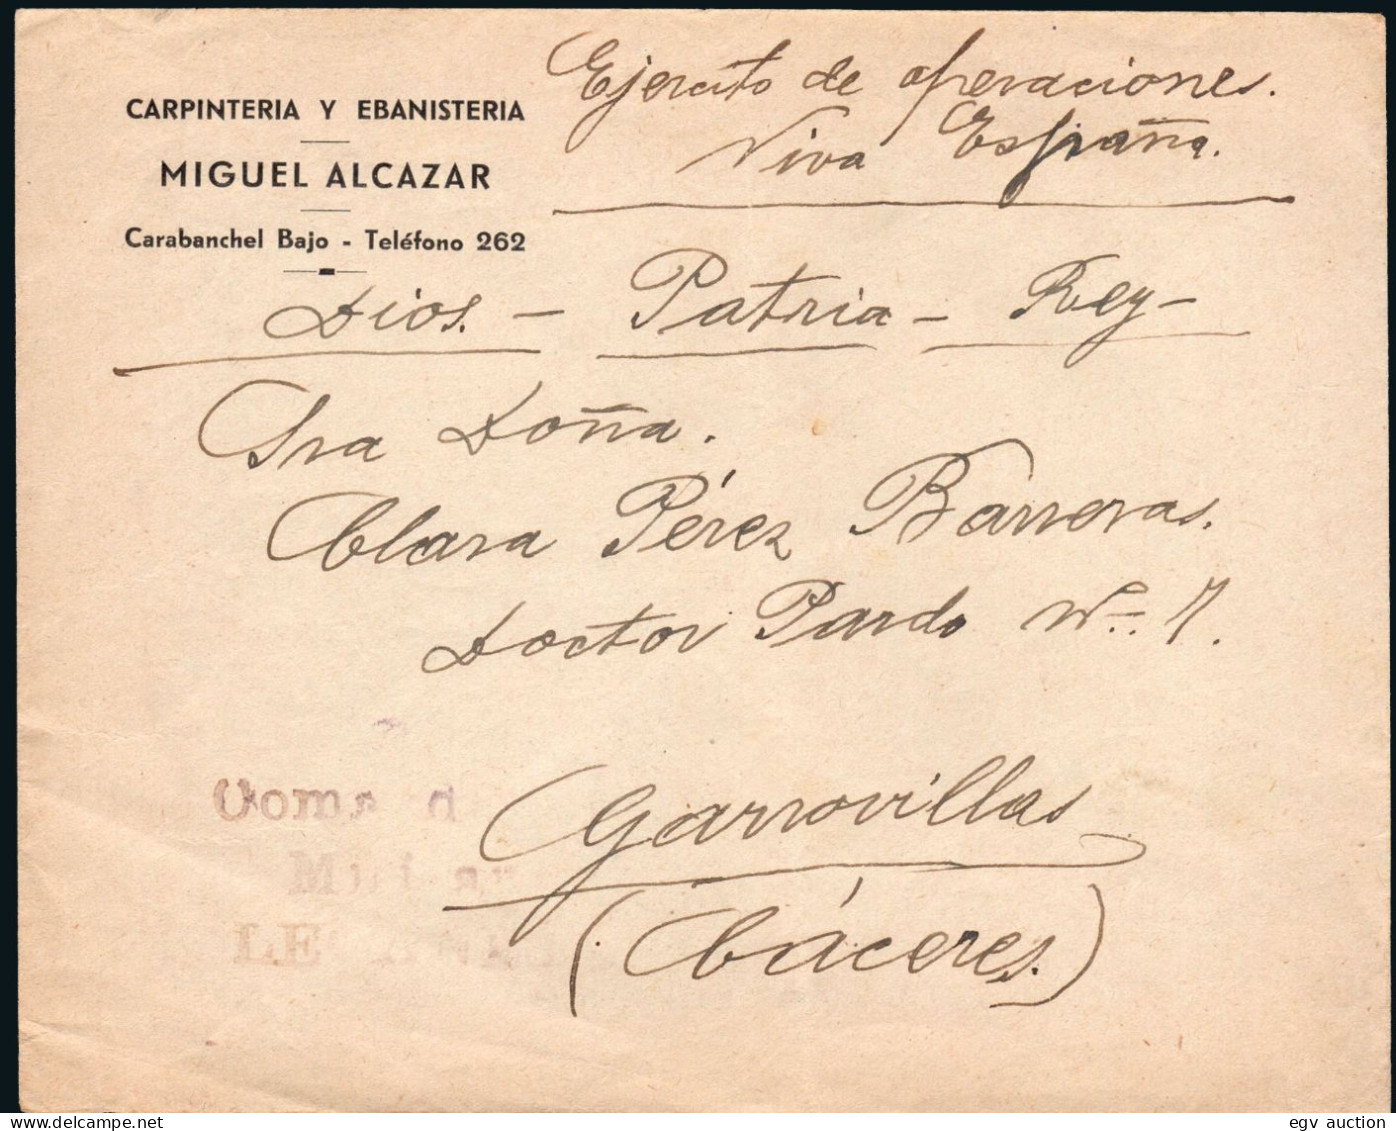 CARPINTERIA Y EBANISTERIA
MIGUEL ALCAZAR
Carabanchel Bajo - Teléfono 262
Ejercito de operaciones.
Viva España.
Dios. - Patria - Rey -
Sra Doña.
Clara Pérez Barreras.
Doctor Pardo Nº 7.
Garrovillas
(Cáceres.)
Militar
www.delcampe.net
egv auction